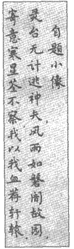 自题小像
灵台无计逃神矢，风雨如磐闇故园。
寄意寒星荃不察，我以我血荐轩辕。